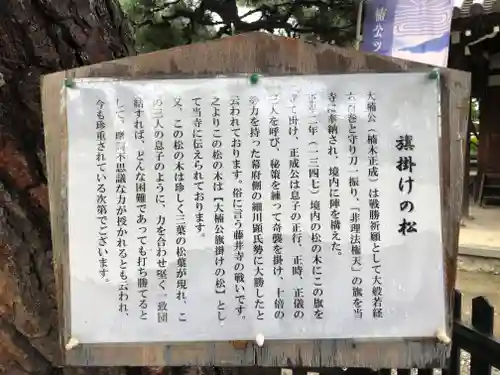 旗掛けの松
大楠公(楠木正成)は戦勝祈願として大般若経
六百巻と守り刀一振り、「非理法権天」の旗を当
寺に奉納され、境内に陣を構えた。
正平二年(一三四七)境内の松の木にこの旗を
掛け、正成公は息子の正行、正時、正儀の
三人を呼び、秘策を練って奇襲を掛け、十倍の
勢力を持った幕府側の細川顕氏勢に大勝したと
云われております。俗に言う藤井寺の戦いです。
之よりこの松の木は【大楠公旗掛けの松】とし
て当寺に伝えられております。
又、この松の木は珍しく三葉の松葉が現れ、こ
の三人の息子のように、力を合わせ堅く一致団
結すれば、どんな困難であっても打ち勝てると
して、摩訶不思議な力が授かれるとも云われ、
今も珍重されている次第でございます。
楠公ツ
の旗掛